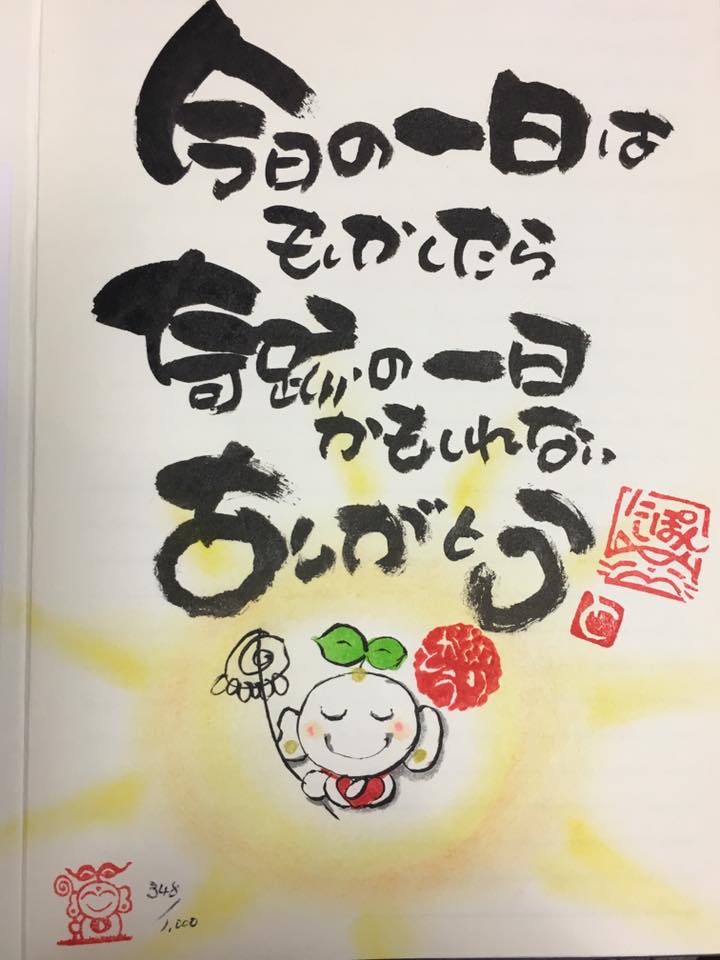 今日の一日は
もしかしたら
奇跡の一日
かもしれない
ありがとう
348
/
1,000